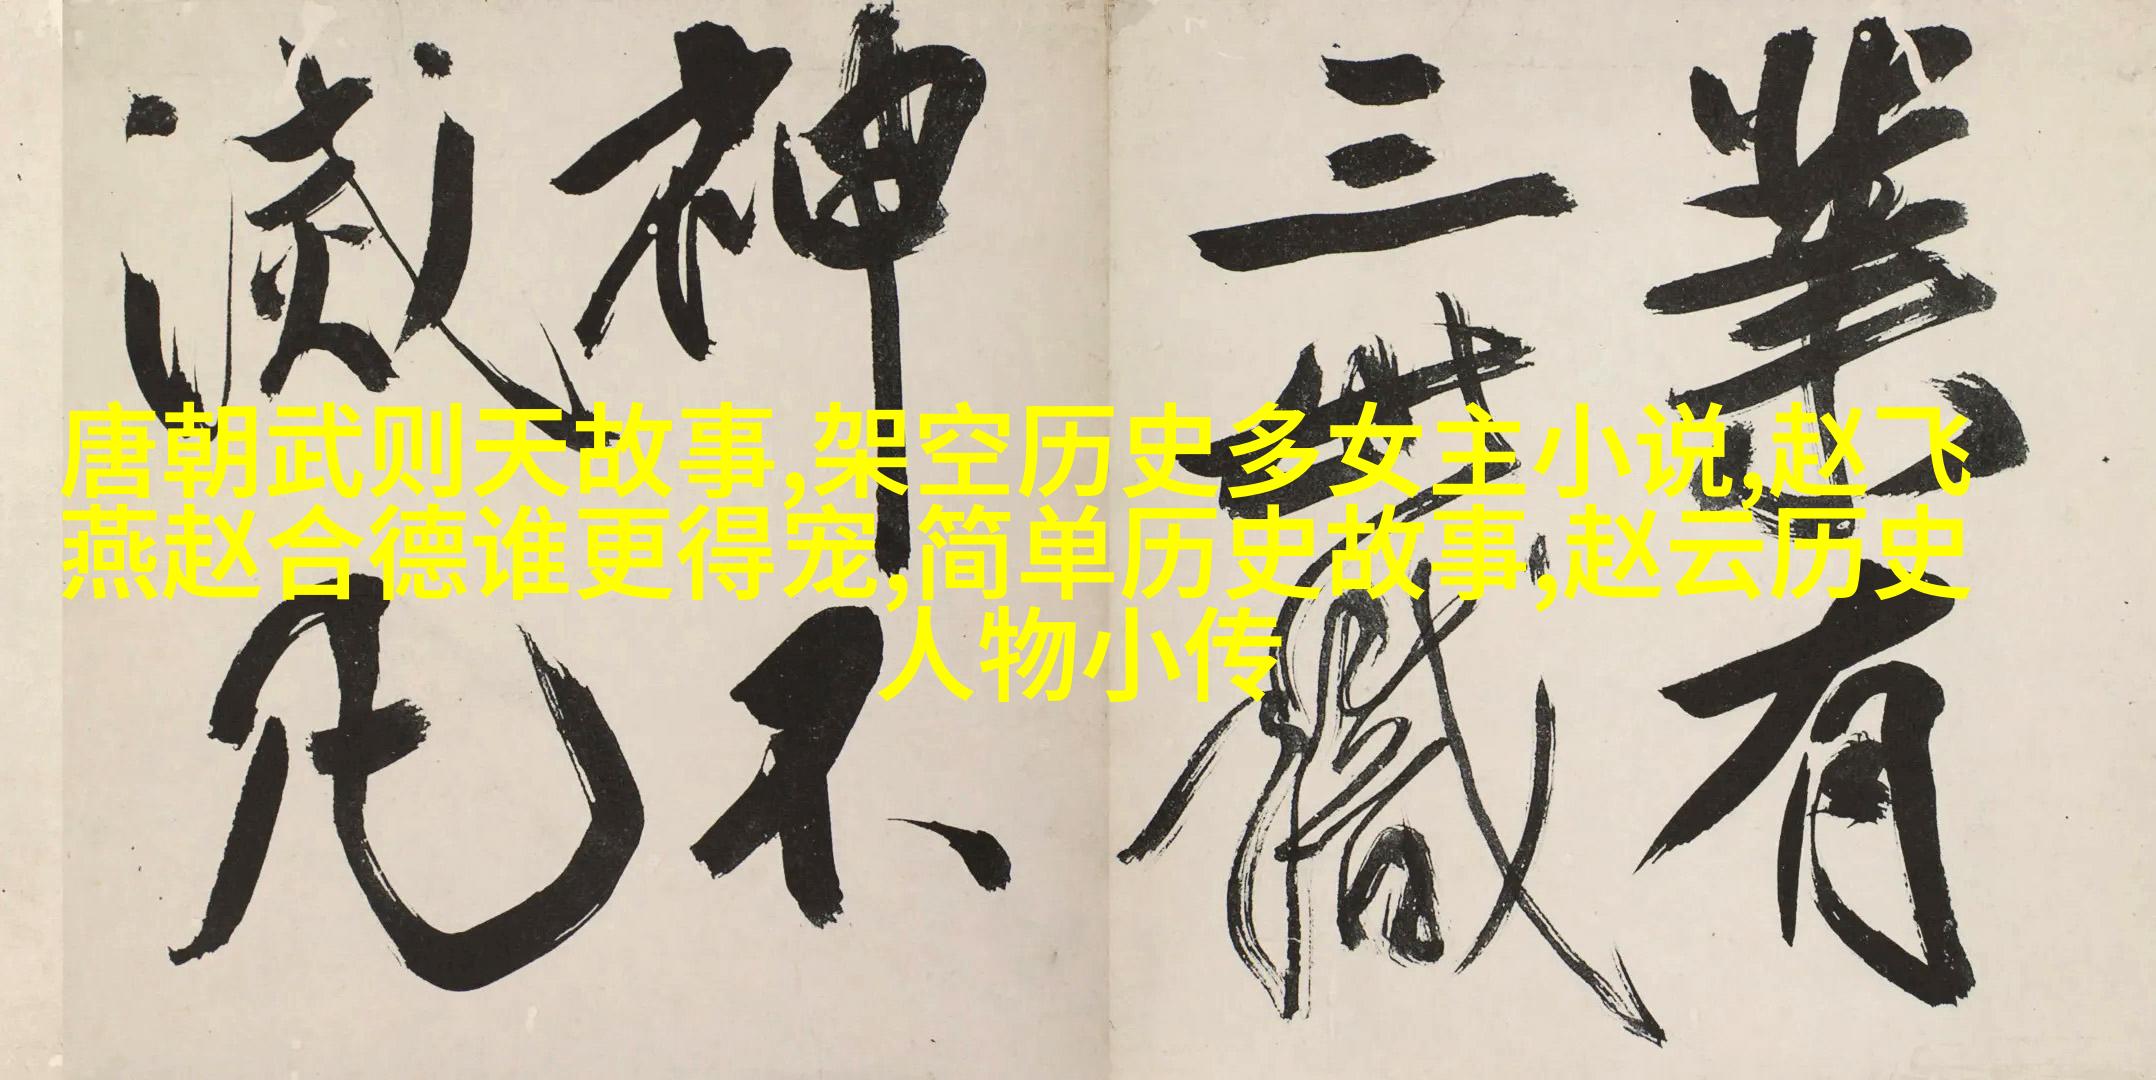 唐朝武则天故事,架空历史多女主小说,赵飞
燕赵合德谁更得宠,简单历史故事,赵云历史
人物小传
業有
三世識
神不
滅凡